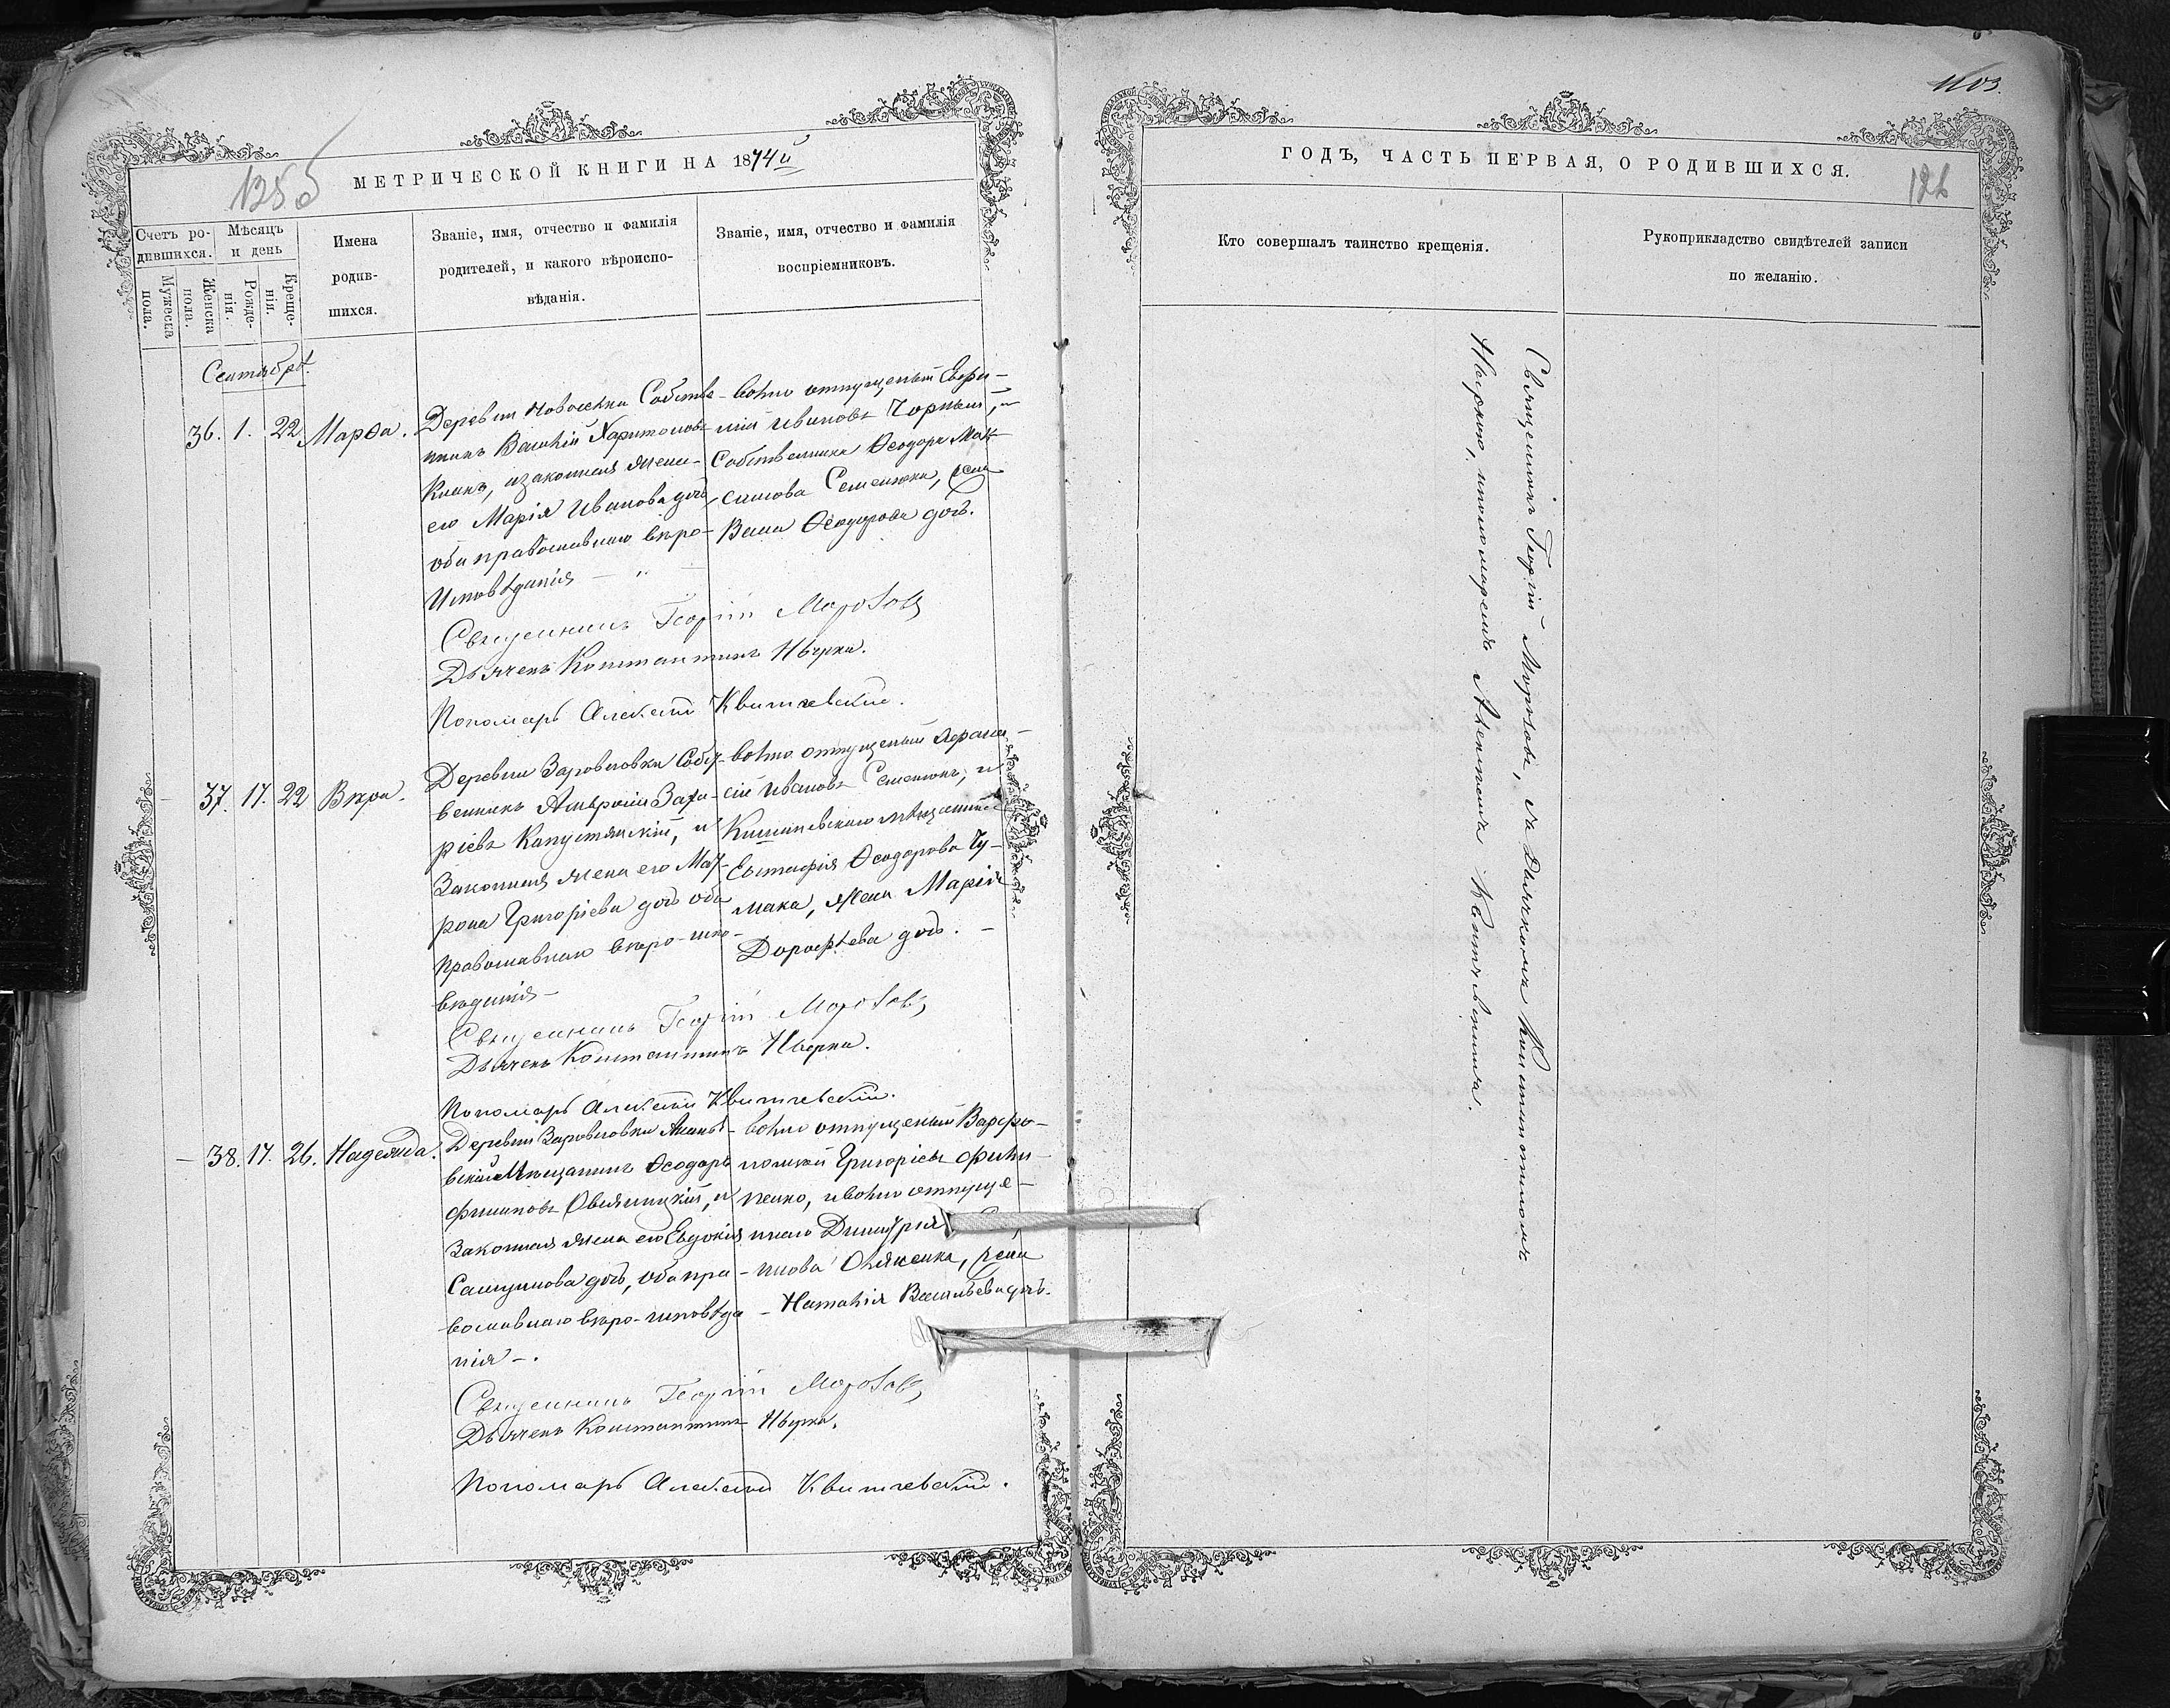 125 б
МЕТРИЧЕСКОЙ КНИГИ НА 1874й
Счетъ ро-
дившихся.
Мужеска
пола.
Женска
пола.
Мѣсяцъ
и день
Рожде-
нія.
Креще-
нія.
Имена
родив-
шихся.
Званіе, имя, отчество и фамилія
родителей, и какого вѣроиспо-
вѣданія.
Званіе, имя, отчество и фамилія
воспріемниковъ.
Сентябрь.
36. 1. 22 Марѳа.
Деревни Новоселки Собстве-
нникъ Василій Харитоновъ
изаконная жена
его Марія Иванова дочь,
оба православнаго вѣро-
исповѣданія
вольно отпущеный Евфи-
мій Ивановъ Чорный, и
Собственника Ѳеодора Мак-
симова Семенюка,
Ѳеодорова дочь.
Священникъ Георгій Морозовъ
Дьячекъ Константинъ Нырка.
Пономарь Алексѣй Квитчевскій.
37. 17. 22 Вѣра.
Деревни Заровловки Собст-
венникъ Амвросій Заха-
ріевъ Капустянскій, и
Законная жена его Мат-
рона Григоріева дочь оба
православнаго вѣро-испо-
вѣданія
вольно отпущеный Афана-
сій Ивановъ Семенюкъ, и
Кишиневскаго мѣщанина
Евстафія Ѳеодорова Чу-
мака, жена Марія
Дорофѣева дочь.
Священникъ Георгій Морозовъ
Дьячекъ Константинъ Нырка.
Пономарь Алексѣй Квитчевскій.
38. 17. 26. Надежда.
Деревни Заровловки Ананьѣ-
вскій Мѣщанинъ Ѳеодоръ
и
Законная жена его Евдокія
дочь, оба пра-
вославнаго вѣро-исповѣда
нія
вольно отпущеный Варфо-
ломей Григорієвъ Фили-
пенко, и вольно отпуще-
наго Димитрія
жена
Наталія Васильева дочь.
Священникъ Георгій Морозовъ
Дьячекъ Константинъ Нырка.
Пономарь Алексѣй Квитчевскій.
126
ГОДЪ, ЧАСТЬ ПЕРВАЯ, О РОДИВШИХСЯ.
Кто совершалъ таинство крещенія.
Рукоприкладство свидѣтелей записи
по желанію.
Священникъ Георгій Морозовъ, съ Дьячкомъ Константиномъ
Ныркою, ипономаремъ Алексѣемъ Квитчевскимъ.